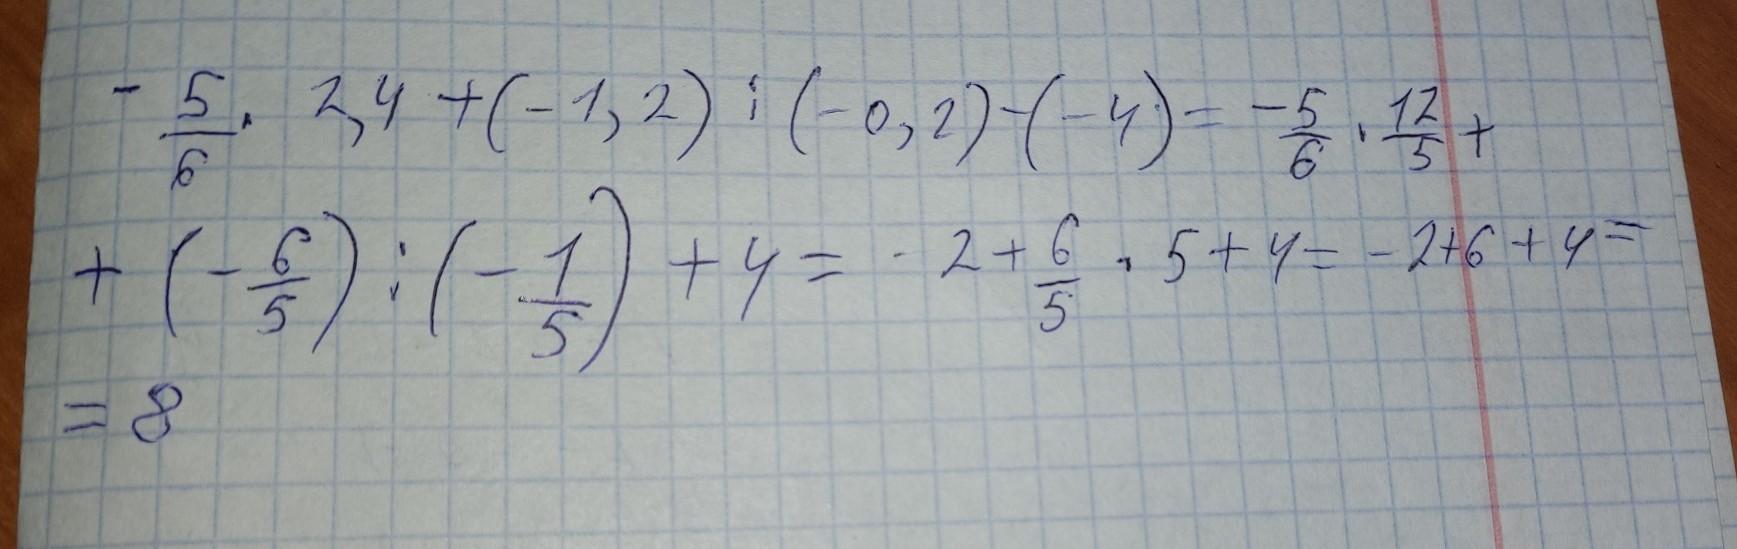 - 5/6 · 2,4 + (-1,2) : (-0,2) - (-4) = -5/6 · 12/5 +
+ (-6/5) : (-1/5) + 4 = -2 + 6/5 · 5 + 4 = -2+6+4 =
= 8